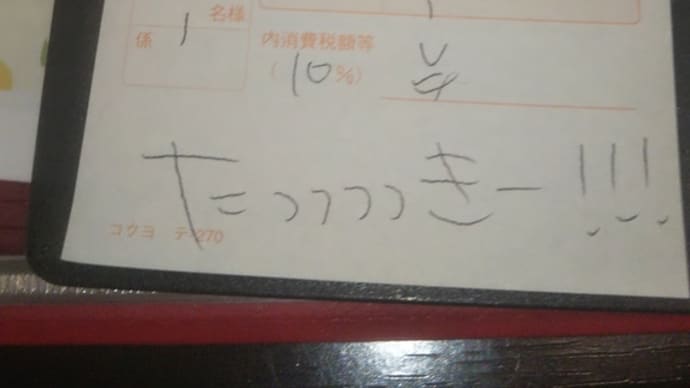 名様
係 1 内消費税額等
(10%) ¥
たっっっっきー!!!
コクヨ テ-270